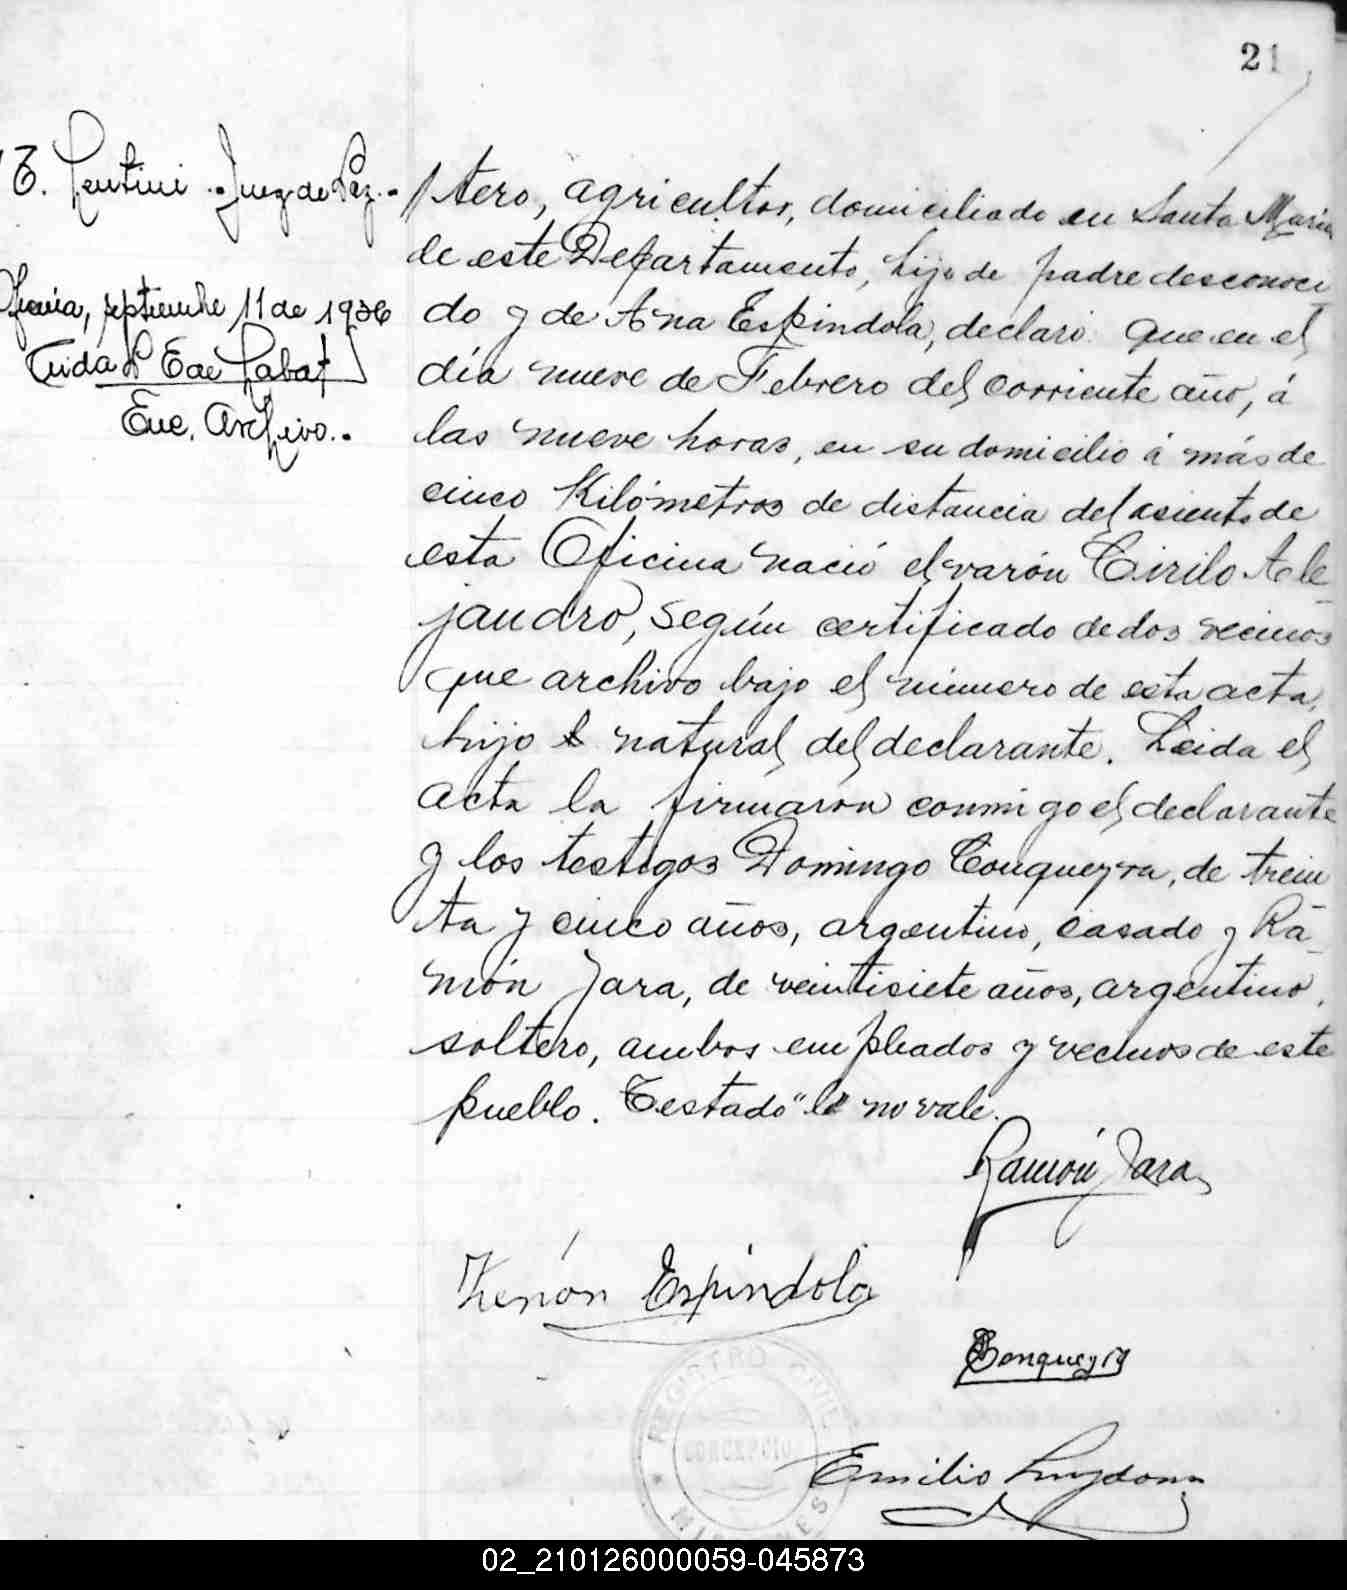 21
E. Lentini Juez de Paz.-
septiembre 11 de 1936
Enc. Archivo.-
tero, agricultor, domiciliado en Santa Maria
de este Departamento, hijo de padre desconoci
do y de Ana Espindola, declaró: Que en el
día nueve de Febrero del corriente año, á
las nueve horas, en su domicilio á más de
cinco Kilómetros de distancia del asiento de
esta Oficina nació el varón Cirilo Ale
jandro, según certificado de dos vecinos
que archivo bajo el número de esta acta,
hijo le natural del declarante. Leida el
acta la firmaron conmigo el declarante
y los testigos Domingo Conqueyra, de trein
ta y cinco años, argentino, casado y Ra-
món Jara, de veintisiete años, argentino,
soltero, ambos empleados y vecinos de este
pueblo. Testado "le" no vale.
Ramón Jara
Zenón Espíndola
Conqueyra
REGISTRO CIVIL
MISIONES
Emilio
02_210126000059-045873